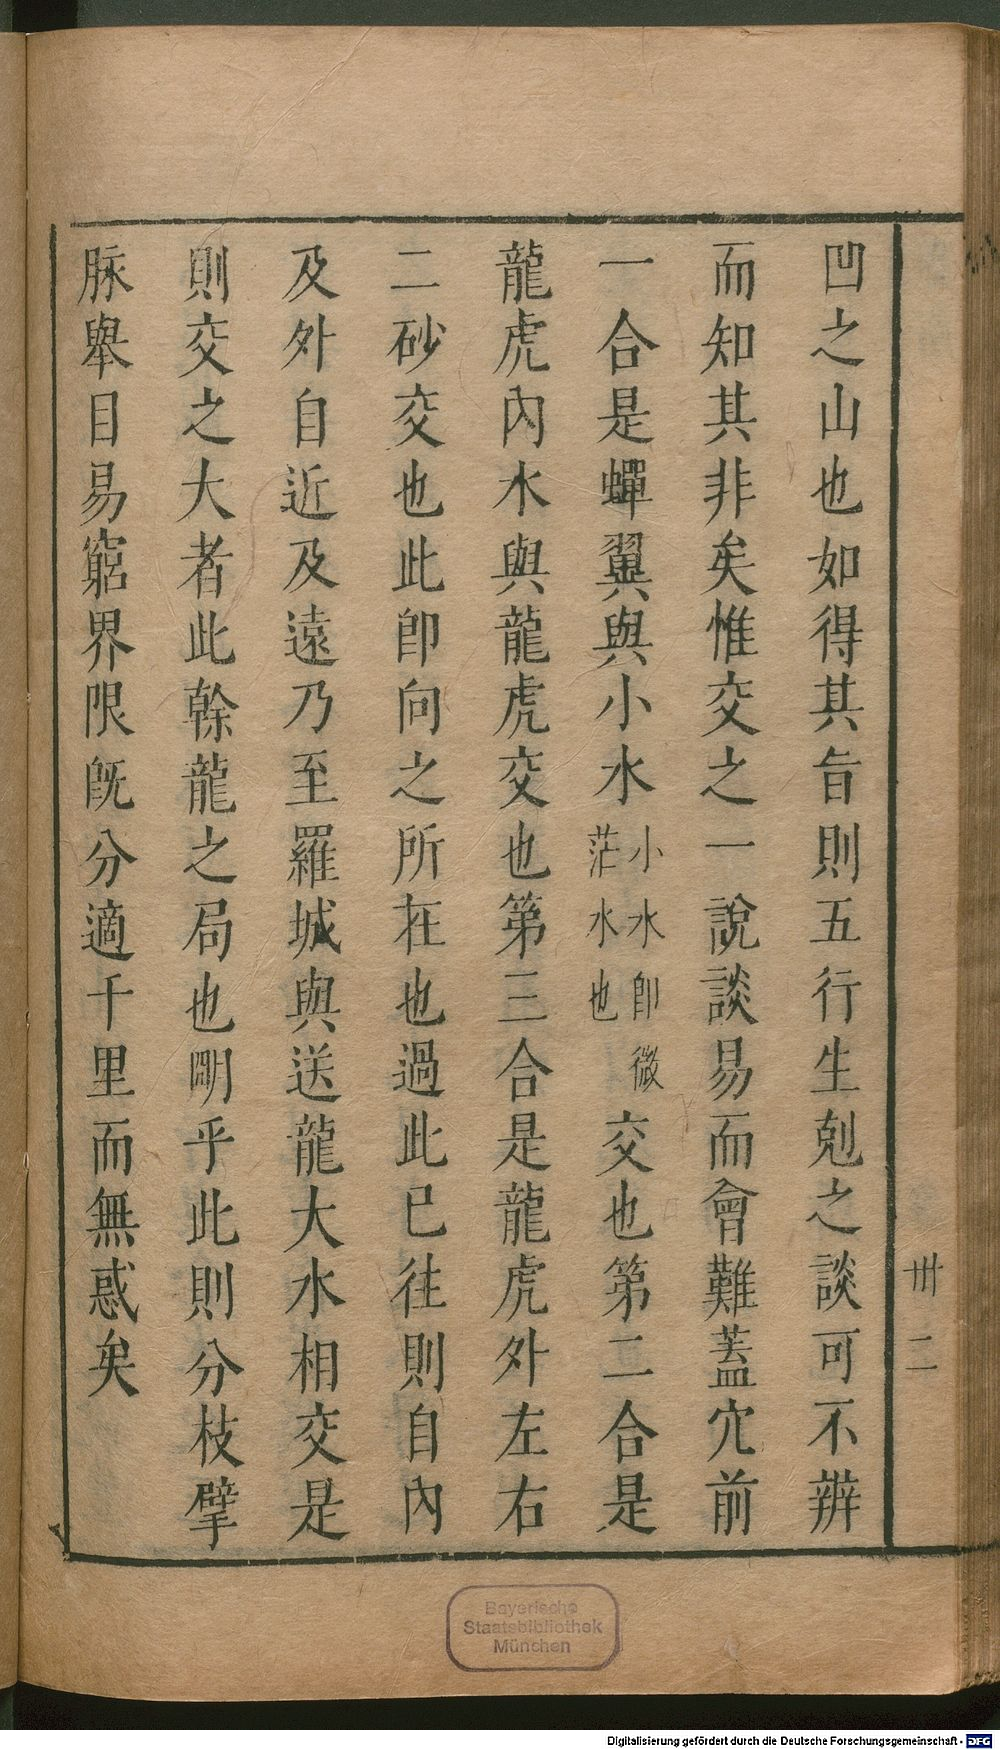 凹之山也如得其旨則五行生剋之談可不辨
而知其非矣惟交之一說談易而會難蓋穴前
一合是蟬翼與小水小水即微茫水也交也第二合是
龍虎內水與龍虎交也第三合是龍虎外左右
二砂交也此卽向之所在也過此已往則自內
及外自近及遠乃至羅城與送龍大水相交是
則交之大者此幹龍之局也明乎此則分枝擘
脉舉目易窮界限旣分適千里而無惑矣
卅二
Bayerische
Staatsbibliothek
München
Digitalisierung gefördert durch die Deutsche Forschungsgemeinschaft - DFG